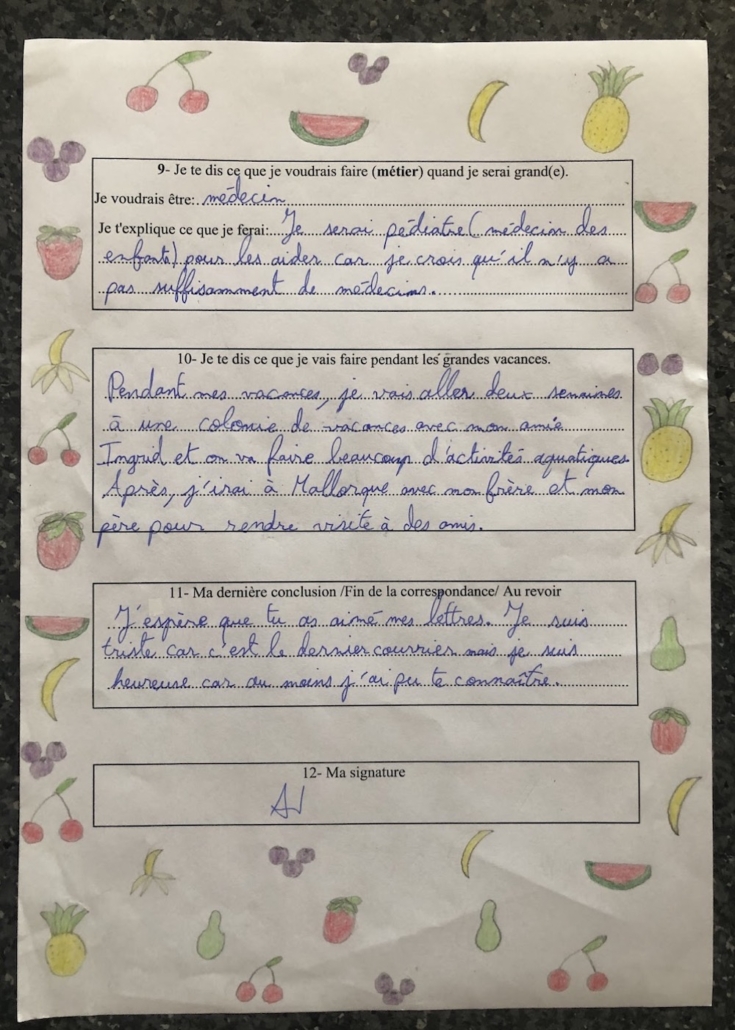 9- Je te dis ce que je voudrais faire (métier) quand je serai grand(e).
Je voudrais être: médecin
Je t'explique ce que je ferai: Je serai pédiatre (médecin des
enfants) pour les aider car je crois qu'il n'y a
pas suffisamment de médecins.
10- Je te dis ce que je vais faire pendant les grandes vacances.
Pendant mes vacances, je vais aller deux semaines
à une colonie de vacances avec mon amie
Ingrid et on va faire beaucoup d'activités aquatiques
Après, j'irai à Mallorque avec mon frère et mon
père pour rendre visite à des amis.
11- Ma dernière conclusion /Fin de la correspondance/ Au revoir
J'espère que tu as aimé mes lettres. Je suis
triste car c'est le dernier courrier mais je suis
heureuse car au moins j'ai pu te connaître.
12- Ma signature